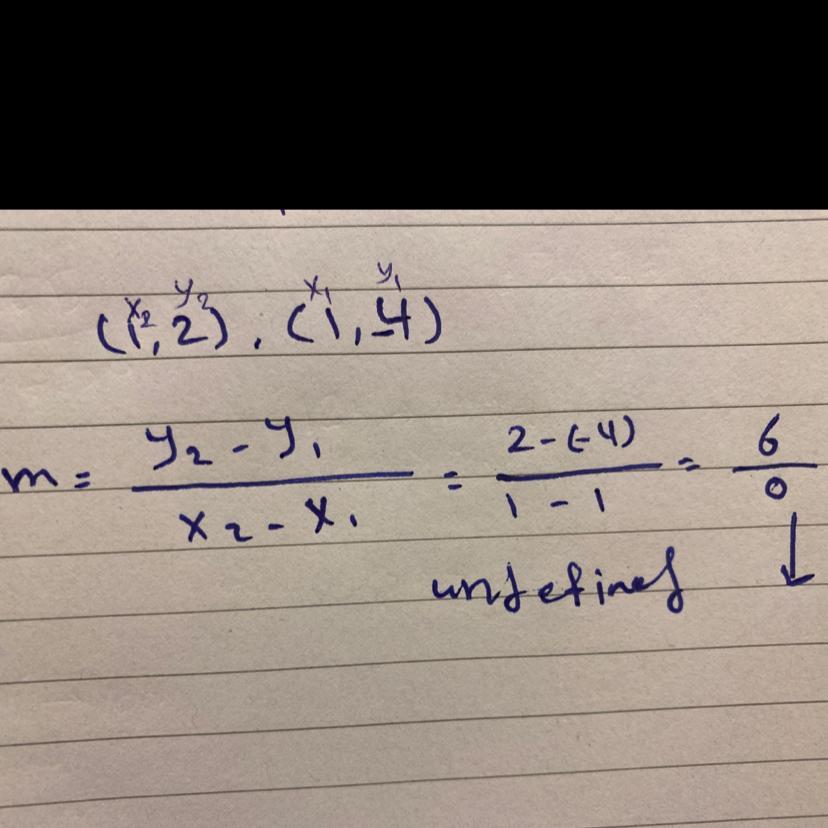 x₂ y₂ x₁ y₁
(1, 2), (1, -4)
m = (y₂ - y₁) / (x₂ - x₁) = (2 - (-4)) / (1 - 1) = 6 / 0
undefined ↓